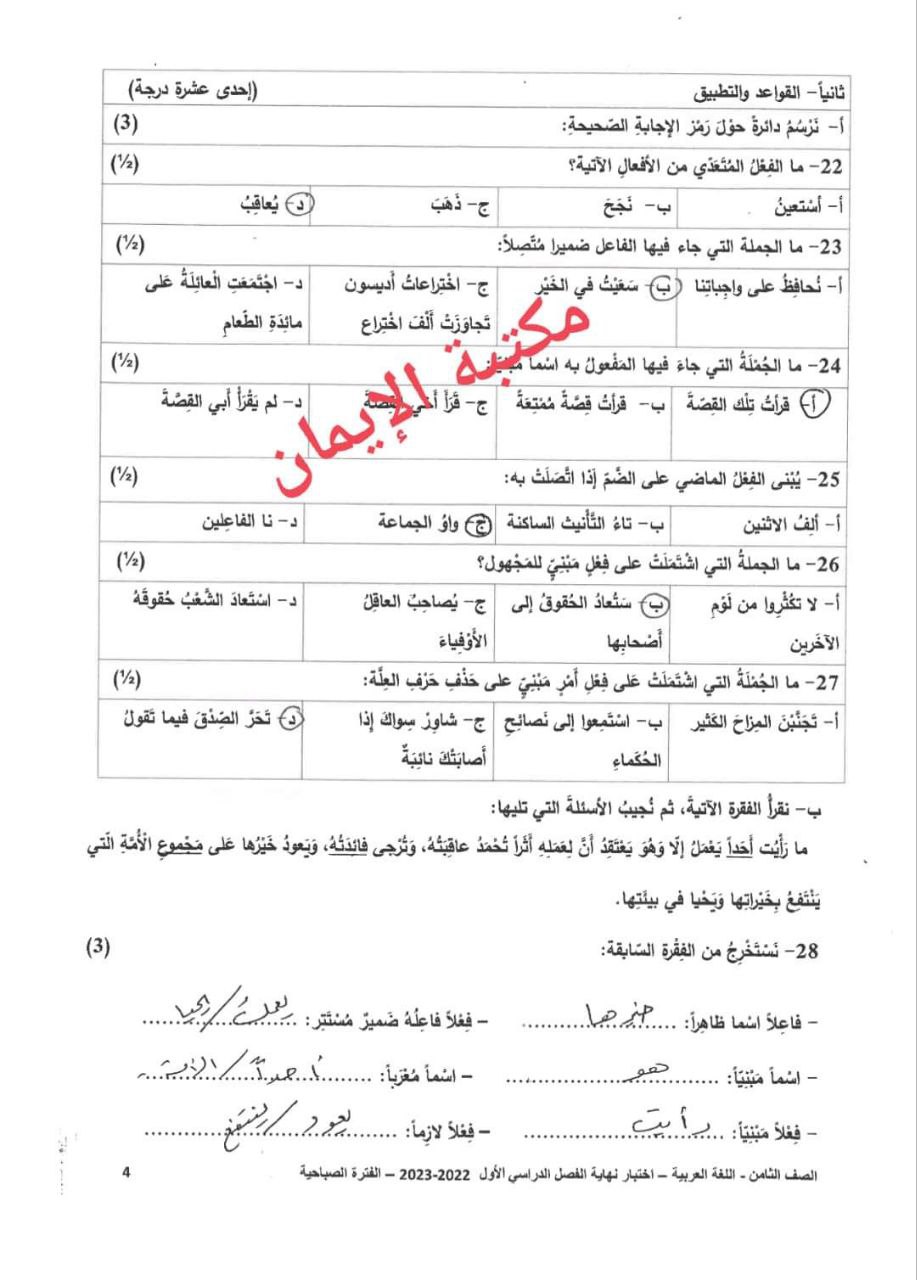 ثانياً- القواعد والتطبيق (إحدى عشرة درجة)
أ- نَرْسُمُ دائرةً حوْلَ رَمْز الإجابةِ الصّحيحةِ: (3)
22- ما الفِعْلُ المُتَعَدّي من الأفعالِ الآتية؟ (½)
أ- أسْتعينُ ب- نَجَحَ ج- ذَهَبَ د- يُعاقِبُ
23- ما الجملة التي جاء فيها الفاعل ضميرا مُتّصِلاً: (½)
أ- نُحافِظُ على واجِباتِنا ب- سَعَيْتُ في الخَيْر ج- اخْتِراعاتُ أديسون د- اجْتَمَعَتِ العائِلَةُ عَلى
تَجاوَزَتْ أَلْفَ اخْتِراع مائِدَةِ الطّعامِ
مكتبة الإيمان
24- ما الجُمْلَةُ التي جاءَ فيها المَفْعولُ به اسْماً مَبْنِيّاً: (½)
أ- قرأتُ تِلْك القِصّةَ ب- قرأتُ قِصَّةً مُمْتِعَةً ج- قَرَأَ أخي القِصّةَ د- لم يَقْرَأْ أبي القِصَّةَ
25- يُبْنى الفِعْلُ الماضي على الضَّمّ إذا اتَّصَلَتْ به: (½)
أ- ألِفُ الاثنين ب- تاءُ التَّأنيث الساكنة ج- واوُ الجماعة د- نا الفاعِلين
26- ما الجملةُ التي اشْتَمَلَتْ على فِعْلٍ مَبْنِيّ للمَجْهول؟ (½)
أ- لا تكْثُروا من لَوْمِ ب- سَتُعادُ الحُقوقُ إلى ج- يُصاحِبُ العاقِلُ د- اسْتَعادَ الشَّعْبُ حُقوقَهُ
الآخَرين أصْحابِها الأَوْفِياءَ
27- ما الجُمْلَةُ التي اشْتَمَلَتْ عَلى فِعْلِ أَمْرٍ مَبْنِيّ على حَذْفِ حَرْفِ العِلَّة: (½)
أ- تَجَنَّبْنَ المِزاحَ الكَثير ب- اسْتَمِعوا إلى نَصائِحِ ج- شاوِرْ سِواكَ إذا د- تَحَرَّ الصِّدْقَ فيما تَقولُ
الحُكَماءِ أصابَتْكَ نائِبَةٌ
ب- نقرأُ الفقرة الآتيةَ، ثم نُجيبُ الأسئلةَ التي تليها:
ما رَأَيْت أَحَداً يَعْمَلُ إلّا وَهُوَ يَعْتَقِدُ أَنَّ لِعَمَلِهِ أَثَراً تُحْمَدُ عاقِبَتُهُ، وَتُرْجى فائِدَتُهُ، وَيَعودُ خَيْرُها عَلى مَجْموعِ الْأُمَّةِ الّتي
يَنْتَفِعُ بِخَيْراتِها وَيَحْيا في بيئَتِها.
28- نَسْتَخْرِجُ من الفِقْرة السّابقة: (3)
– فاعِلاً اسْما ظاهِراً: خيرها – فِعْلاً فاعِلُهُ ضَميرٌ مُسْتَتِر: يعملُ/يحيا
– اسْماً مَبْنِيّاً: هو – اسْماً مُعْرَباً: أحداً/الأمة
– فِعْلاً مَبْنِيّاً: رأيت – فِعْلاً لازِماً: يعود/ينتفع
الصف الثامن - اللغة العربية – اختبار نهاية الفصل الدراسي الأول 2022-2023 – الفترة الصباحية 4